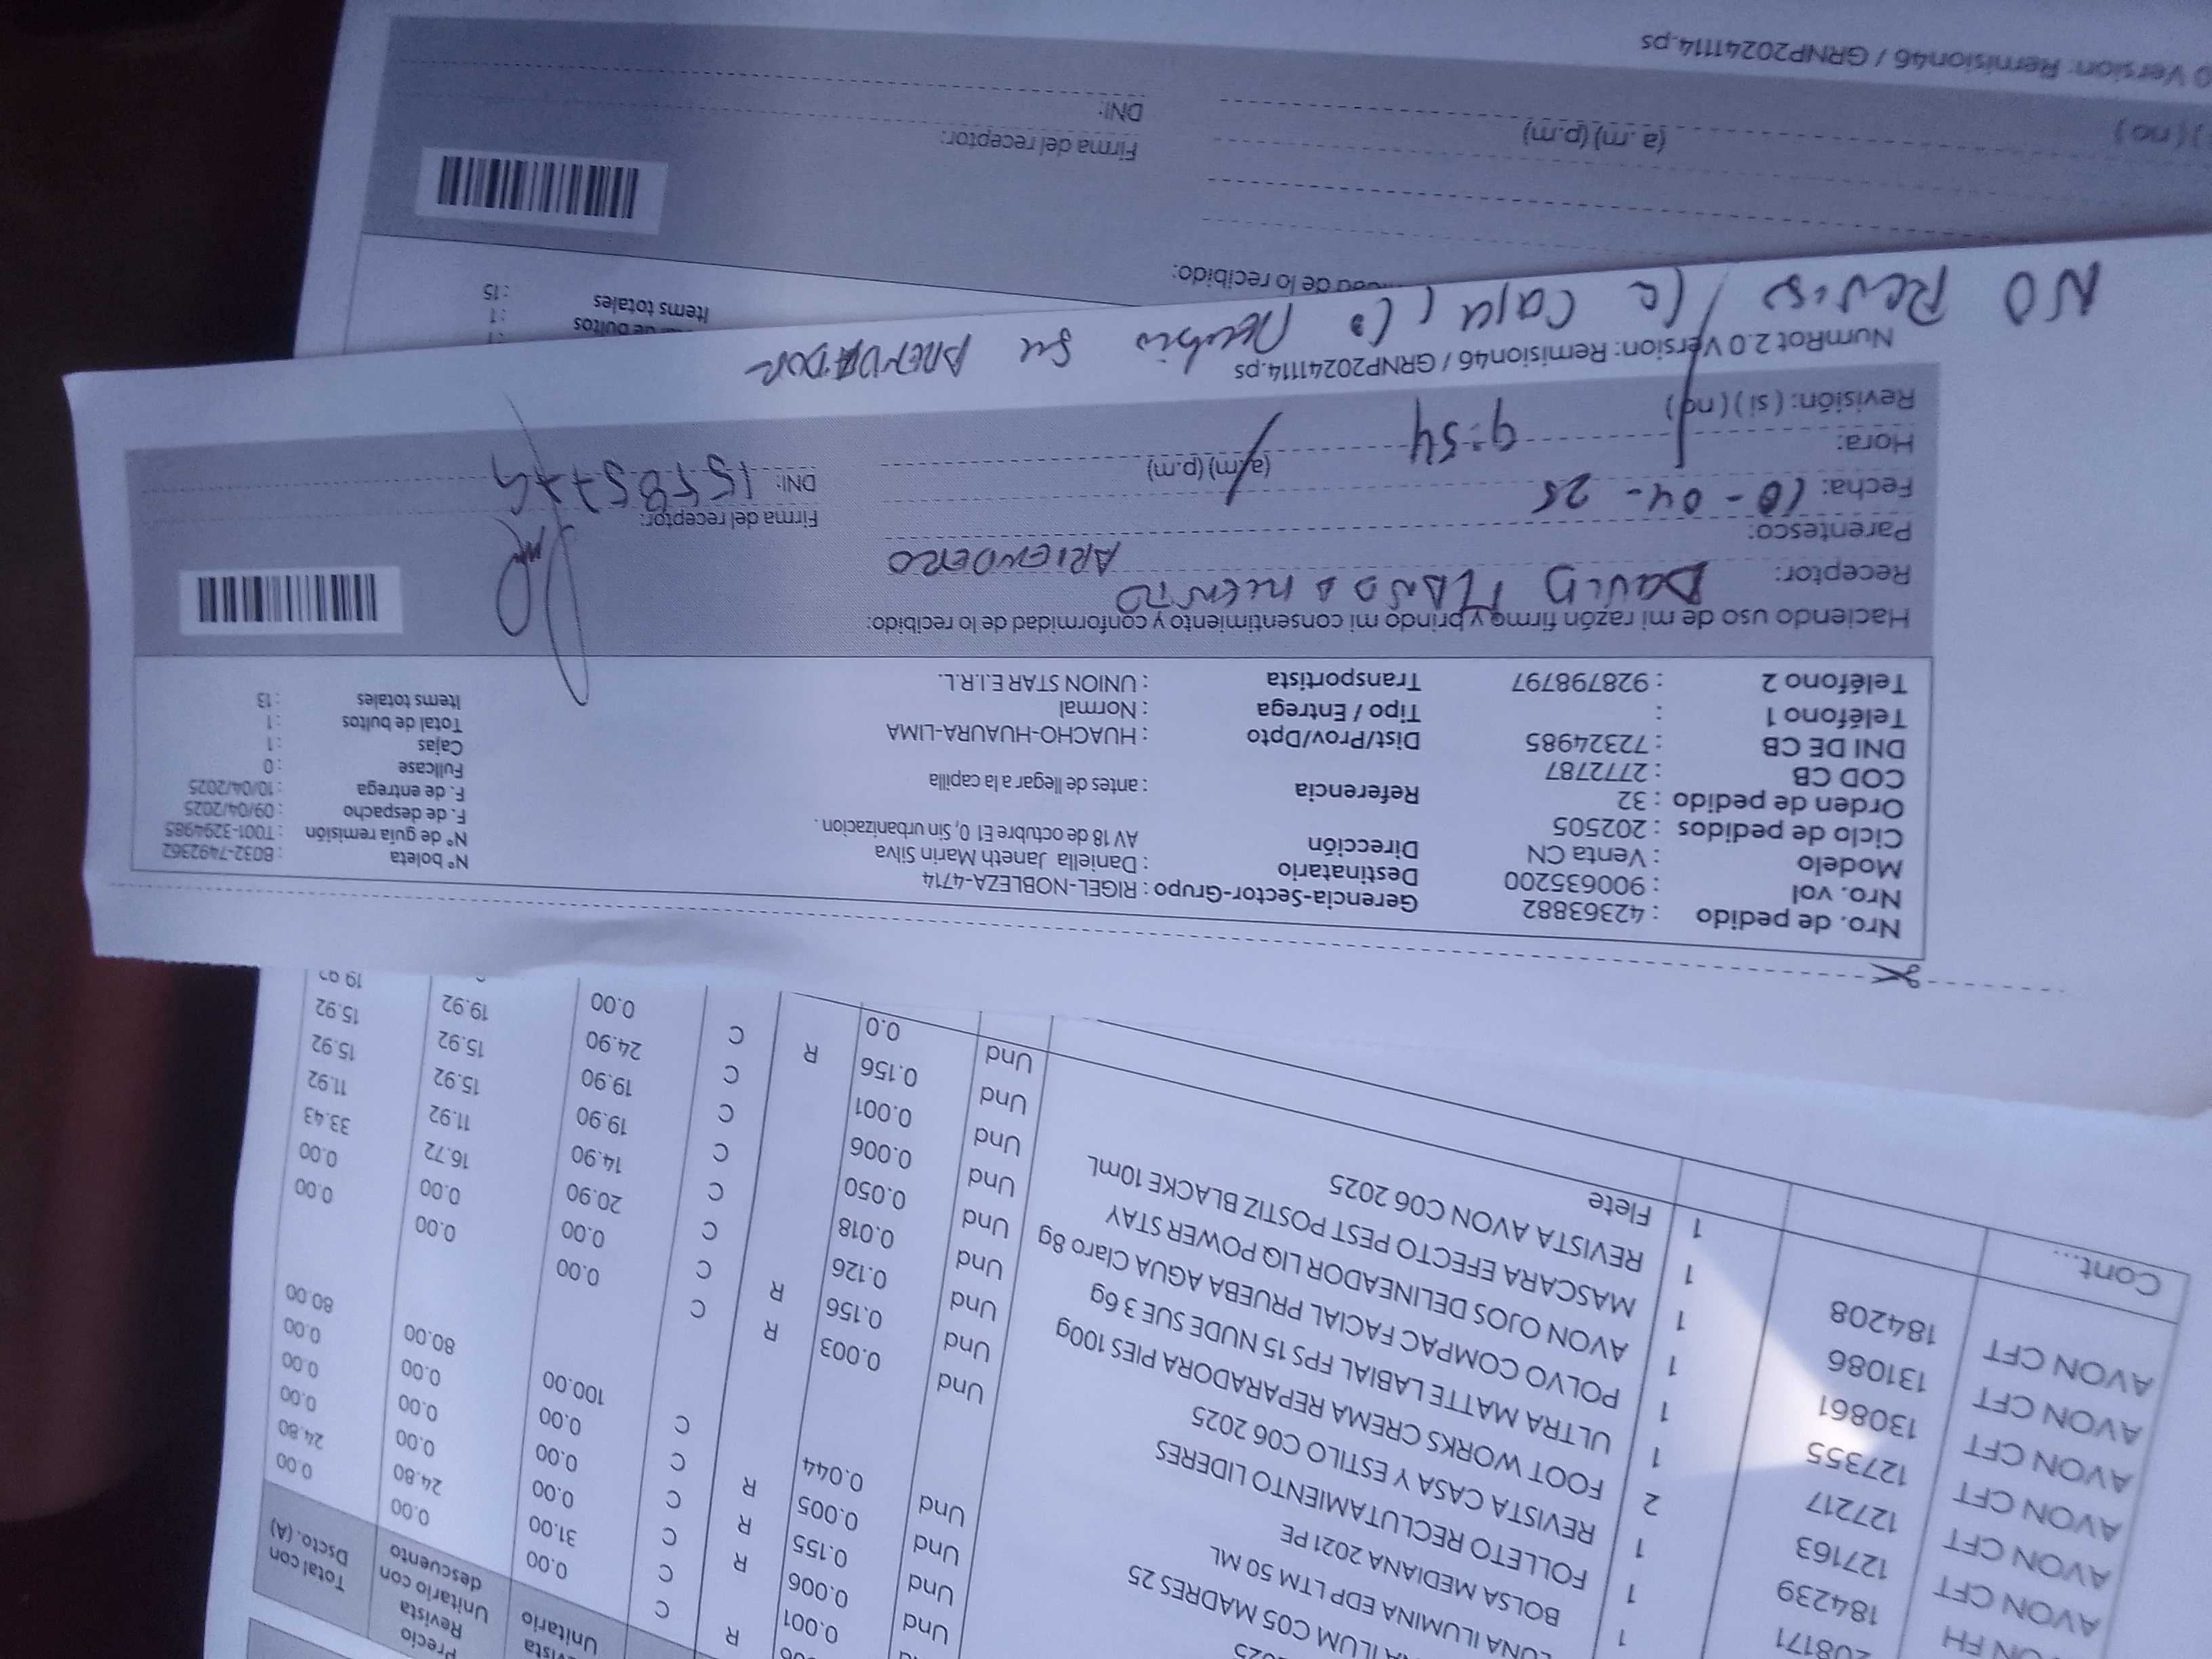 Precio
Revista
Unitario con
descuento
Total con
Dscto. (A)
Unitario
0.001 R C 0.00 0.00 0.00
ILUM C05 MADRES 25 Und 0.006 C 31.00 24.80 24.80
ILUMINA EDP LTM 50 ML Und 0.155 R C 0.00 0.00 0.00
208171 1 BOLSA MEDIANA 2021 PE Und 0.005 R C 0.00 0.00 0.00
184239 1 FOLLETO RECLUTAMIENTO LIDERES Und 0.044 R C 0.00 0.00 0.00
AVON CFT 127163 1 REVISTA CASA Y ESTILO C06 2025 100.00 80.00 80.00
AVON CFT 127217 2 FOOT WORKS CREMA REPARADORA PIES 100g Und 0.003
AVON CFT 127355 1 ULTRA MATTE LABIAL FPS 15 NUDE SUE 3 6g Und 0.156 R C 0.00 0.00 0.00
AVON CFT 130861 1 POLVO COMPAC FACIAL PRUEBA AGUA Claro 8g Und 0.126 R C 0.00 0.00 0.00
AVON CFT 131086 1 AVON OJOS DELINEADOR LIQ POWER STAY Und 0.018 C 20.90 16.72 33.43
AVON CFT 184208 1 MASCARA EFECTO PEST POSTIZ BLACKE 10mL Und 0.050 C 14.90 11.92 11.92
1 REVISTA AVON C06 2025 Und 0.006 C 19.90 15.92 15.92
1 Flete Und 0.001 C 19.90 15.92 15.92
Und 0.156 C 24.90 19.92 19.92
Und 0.0 R C 0.00
Cont...
Nro. de pedido : 42363882
Nro. vol : 900635200
Modelo : Venta CN
Ciclo de pedidos : 202505
Orden de pedido : 32
COD CB : 2772787
DNI DE CB : 72324985
Teléfono 1 :
Teléfono 2 : 928798797
Gerencia-Sector-Grupo : RIGEL-NOBLEZA-4714
Destinatario : Daniella Janeth Marin Silva
Dirección AV 18 de octubre E1 0, Sin urbanizacion .
Referencia : antes de llegar a la capilla
Dist/Prov/Dpto : HUACHO-HUAURA-LIMA
Tipo / Entrega : Normal
Transportista : UNION STAR E.I.R.L.
N° boleta : B032-7492362
N° de guía remisión : T001-3294985
F. de despacho : 09/04/2025
F. de entrega : 10/04/2025
Fullcase : 0
Cajas : 1
Total de bultos : 1
Items totales : 13
Haciendo uso de mi razón firmo y brindo mi consentimiento y conformidad de lo recibido:
Receptor: DAVID
Parentesco:
Fecha: 10-04-25
Hora: 9:54 (a.m) (p.m)
Revisión: (si) (no)
Firma del receptor:
DNI:
NumRot 2.0 Version: Remision46 / GRNP20241114.ps
NO Reviso la caja lo Recibio su
de lo recibido:
de bultos : 1
Items totales : 15
(a.m) (p.m)
(no)
Firma del receptor:
DNI:
Version: Remision46 / GRNP20241114.ps